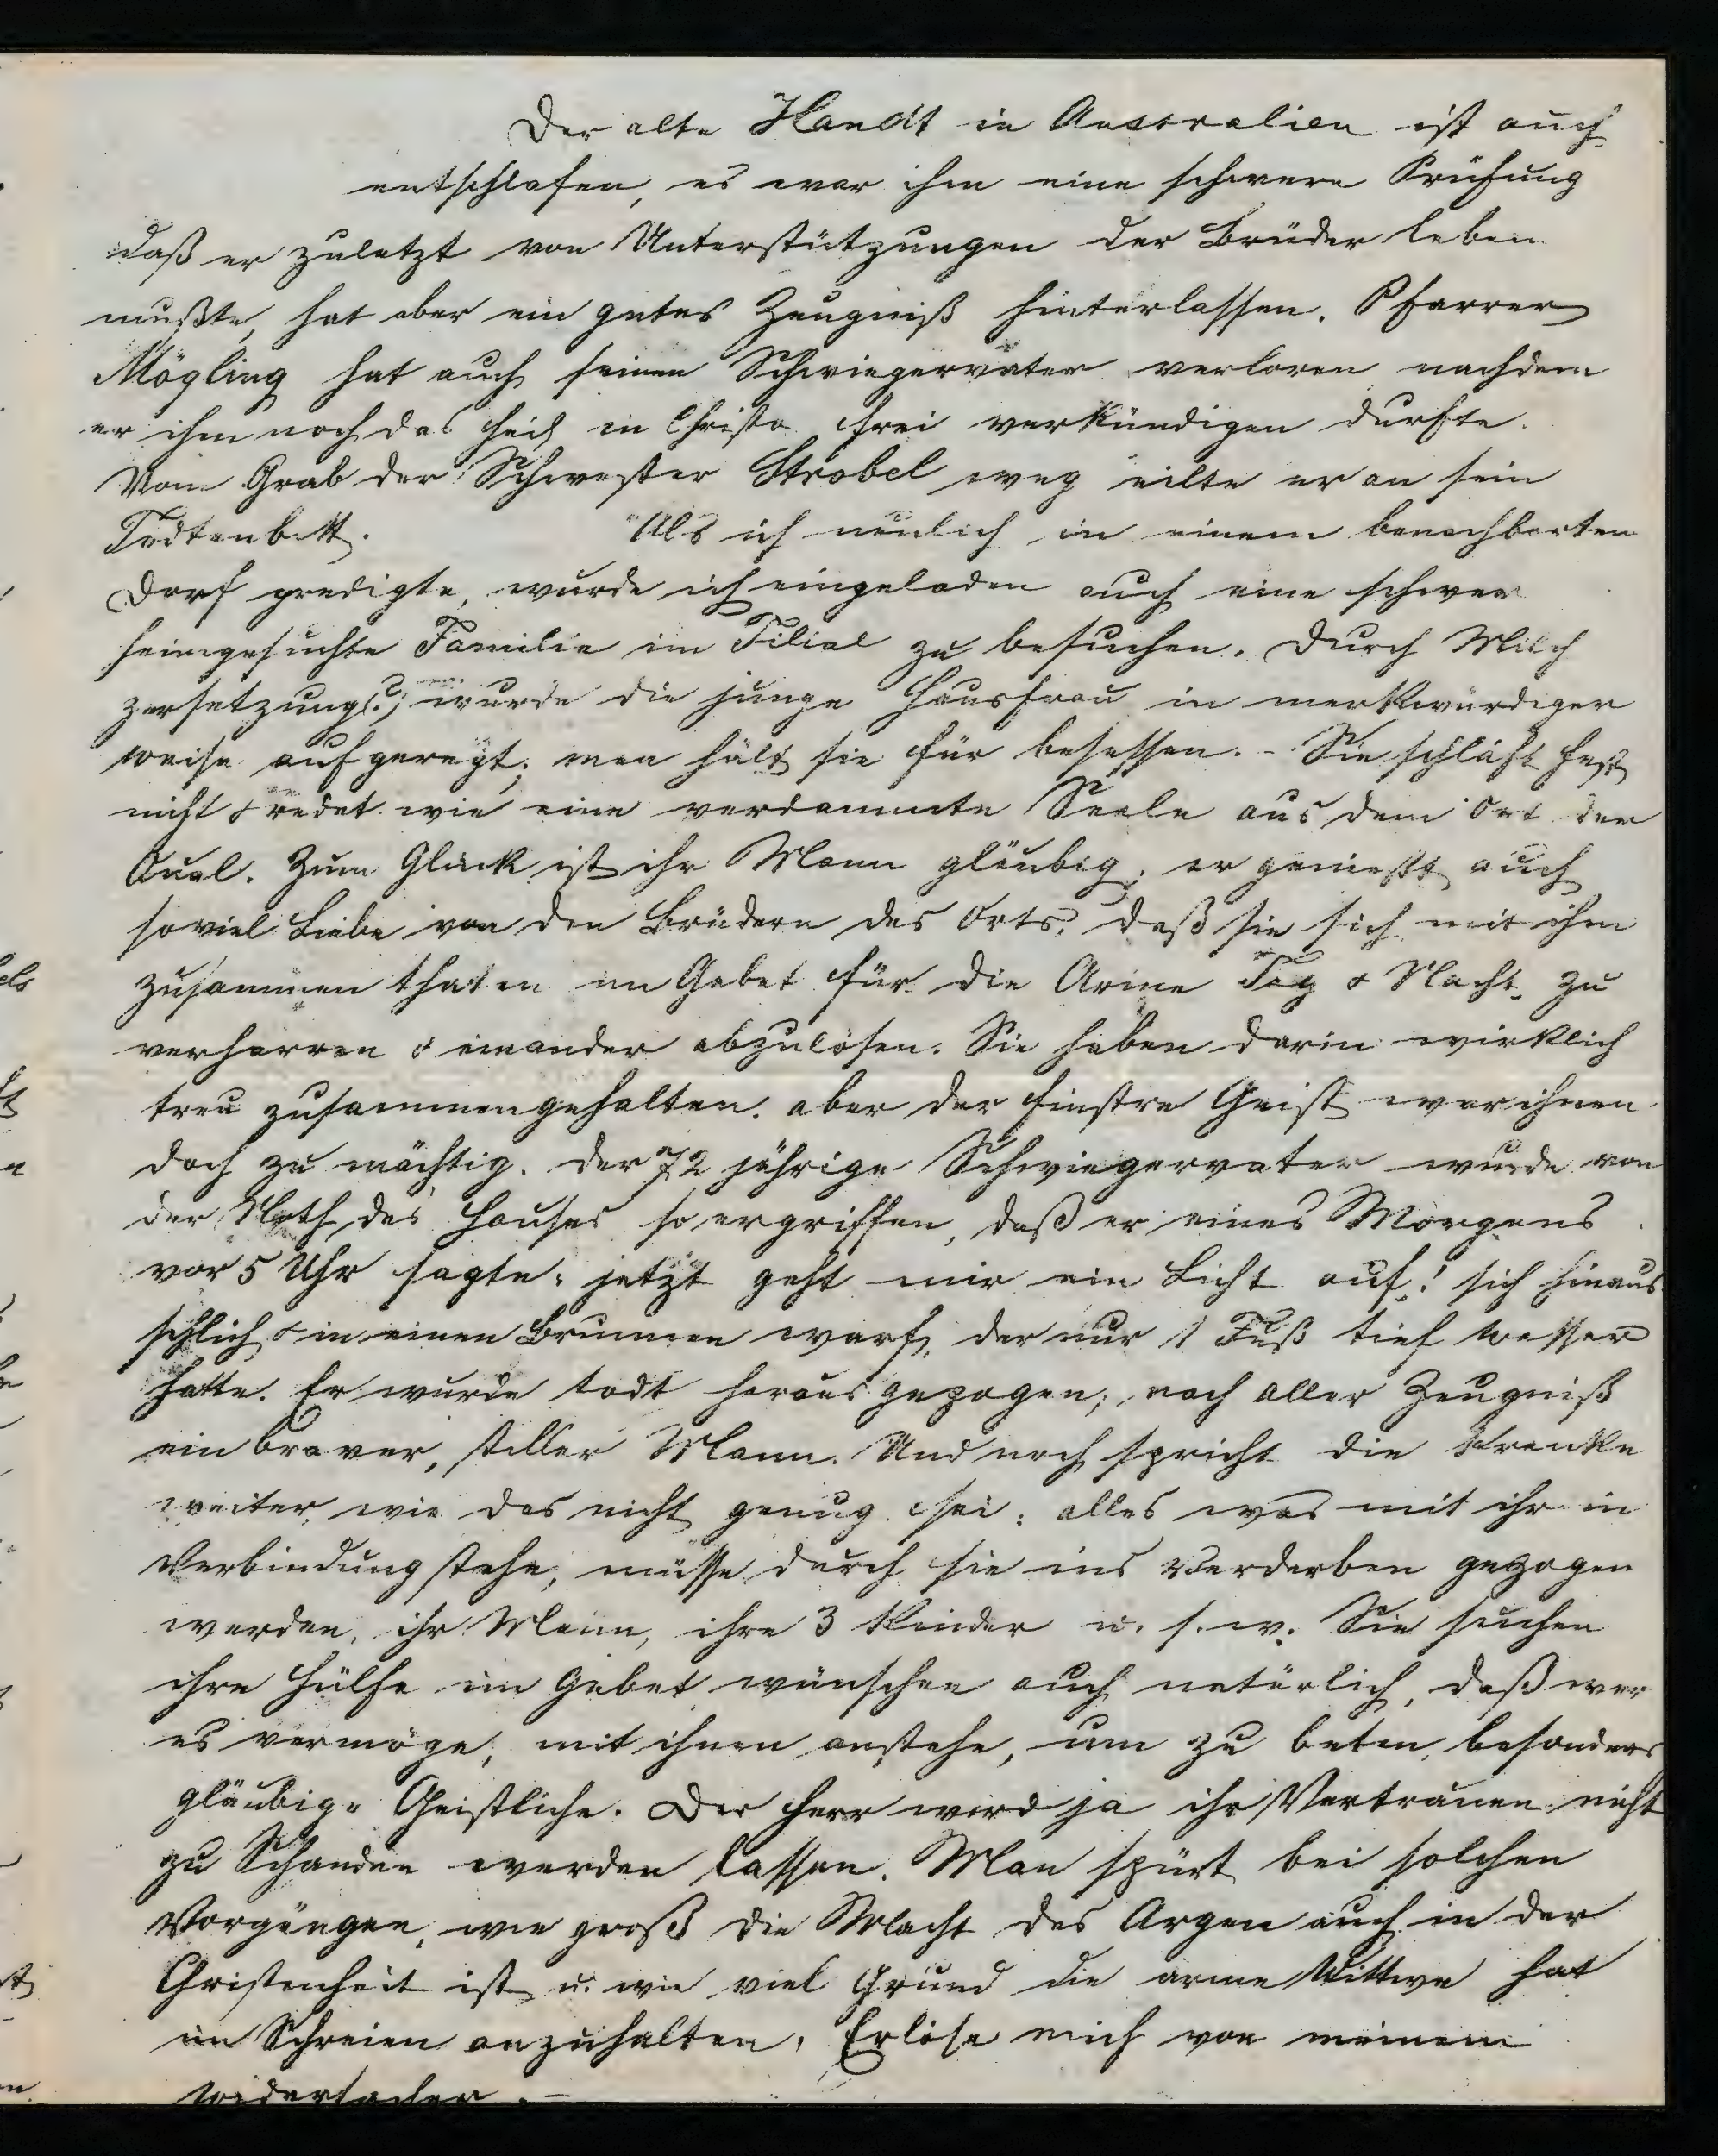 Der alte Handt in Australien ist auch
entschlafen, es war ihm eine schwere Prüfung
daß er zuletzt von Unterstützungen der Brüder leben
mußte, hat aber ein gutes Zeugniß hinterlassen. Pfarrer
Mögling hat auch seinen Schwiegervater verloren nachdem
er ihm noch das Heil in Christo frei verkündigen durfte.
Vom Grab der Schwester Strobel weg eilte er an sein
Todtenbett. "Als ich neulich in einem benachbarten
Dorf predigte, wurde ich eingeladen auch eine schwer
heimgesuchte Familie im Filial zu besuchen. Durch Milch
zersetzung(?) wurde die junge Hausfrau in merkwürdiger
weise aufgeregt; man hält sie für besessen. - Sie schläft fast
nicht & redet wie eine verdammte Seele aus dem Ort der
Qual. Zum Glück ist ihr Mann gläubig; er genießt auch
soviel Liebe von den Brüdern des Orts, daß sie sich mit ihm
zusammen thaten im Gebet für die Arme Tag & Nacht zu
verharren & einander abzulösen. Sie haben darin wirklich
treu zusammengehalten. aber der finstre Geist war ihnen
doch zu mächtig. der 72 jährige Schwiegervater wurde von
der Noth des Hauses so ergriffen, daß er eines Morgens
vor 5 Uhr sagte: jetzt geht mir ein Licht auf! sich hinaus
schlich & in einen Brunnen warf, der nur 1 Fuß tief Wasser
hatte. Er wurde todt herausgezogen; nach aller Zeugniß
ein braver, stiller Mann. Und noch spricht die Kranke
weiter, wie das nicht genug sei; alles was mit ihr in
Verbindung stehe, müsse durch sie ins Verderben gezogen
werden, ihr Mann, ihre 3 Kinder u. s. w. Sie suchen
ihre Hülfe im Gebet wünschen auch natürlich, daß wer
es vermöge, mit ihnen anstehe, um zu beten, besonders
gläubige Geistliche. Der Herr wird ja ihr Vertrauen nicht
zu Schanden werden lassen. Man spürt bei solchen
Vorgängen, wie groß die Macht des Argen auch in der
Christenheit ist u. wie viel Grund die arme Wittwe hat
im Schreien anzuhalten, Erlöse mich von meinem
Widersacher. -